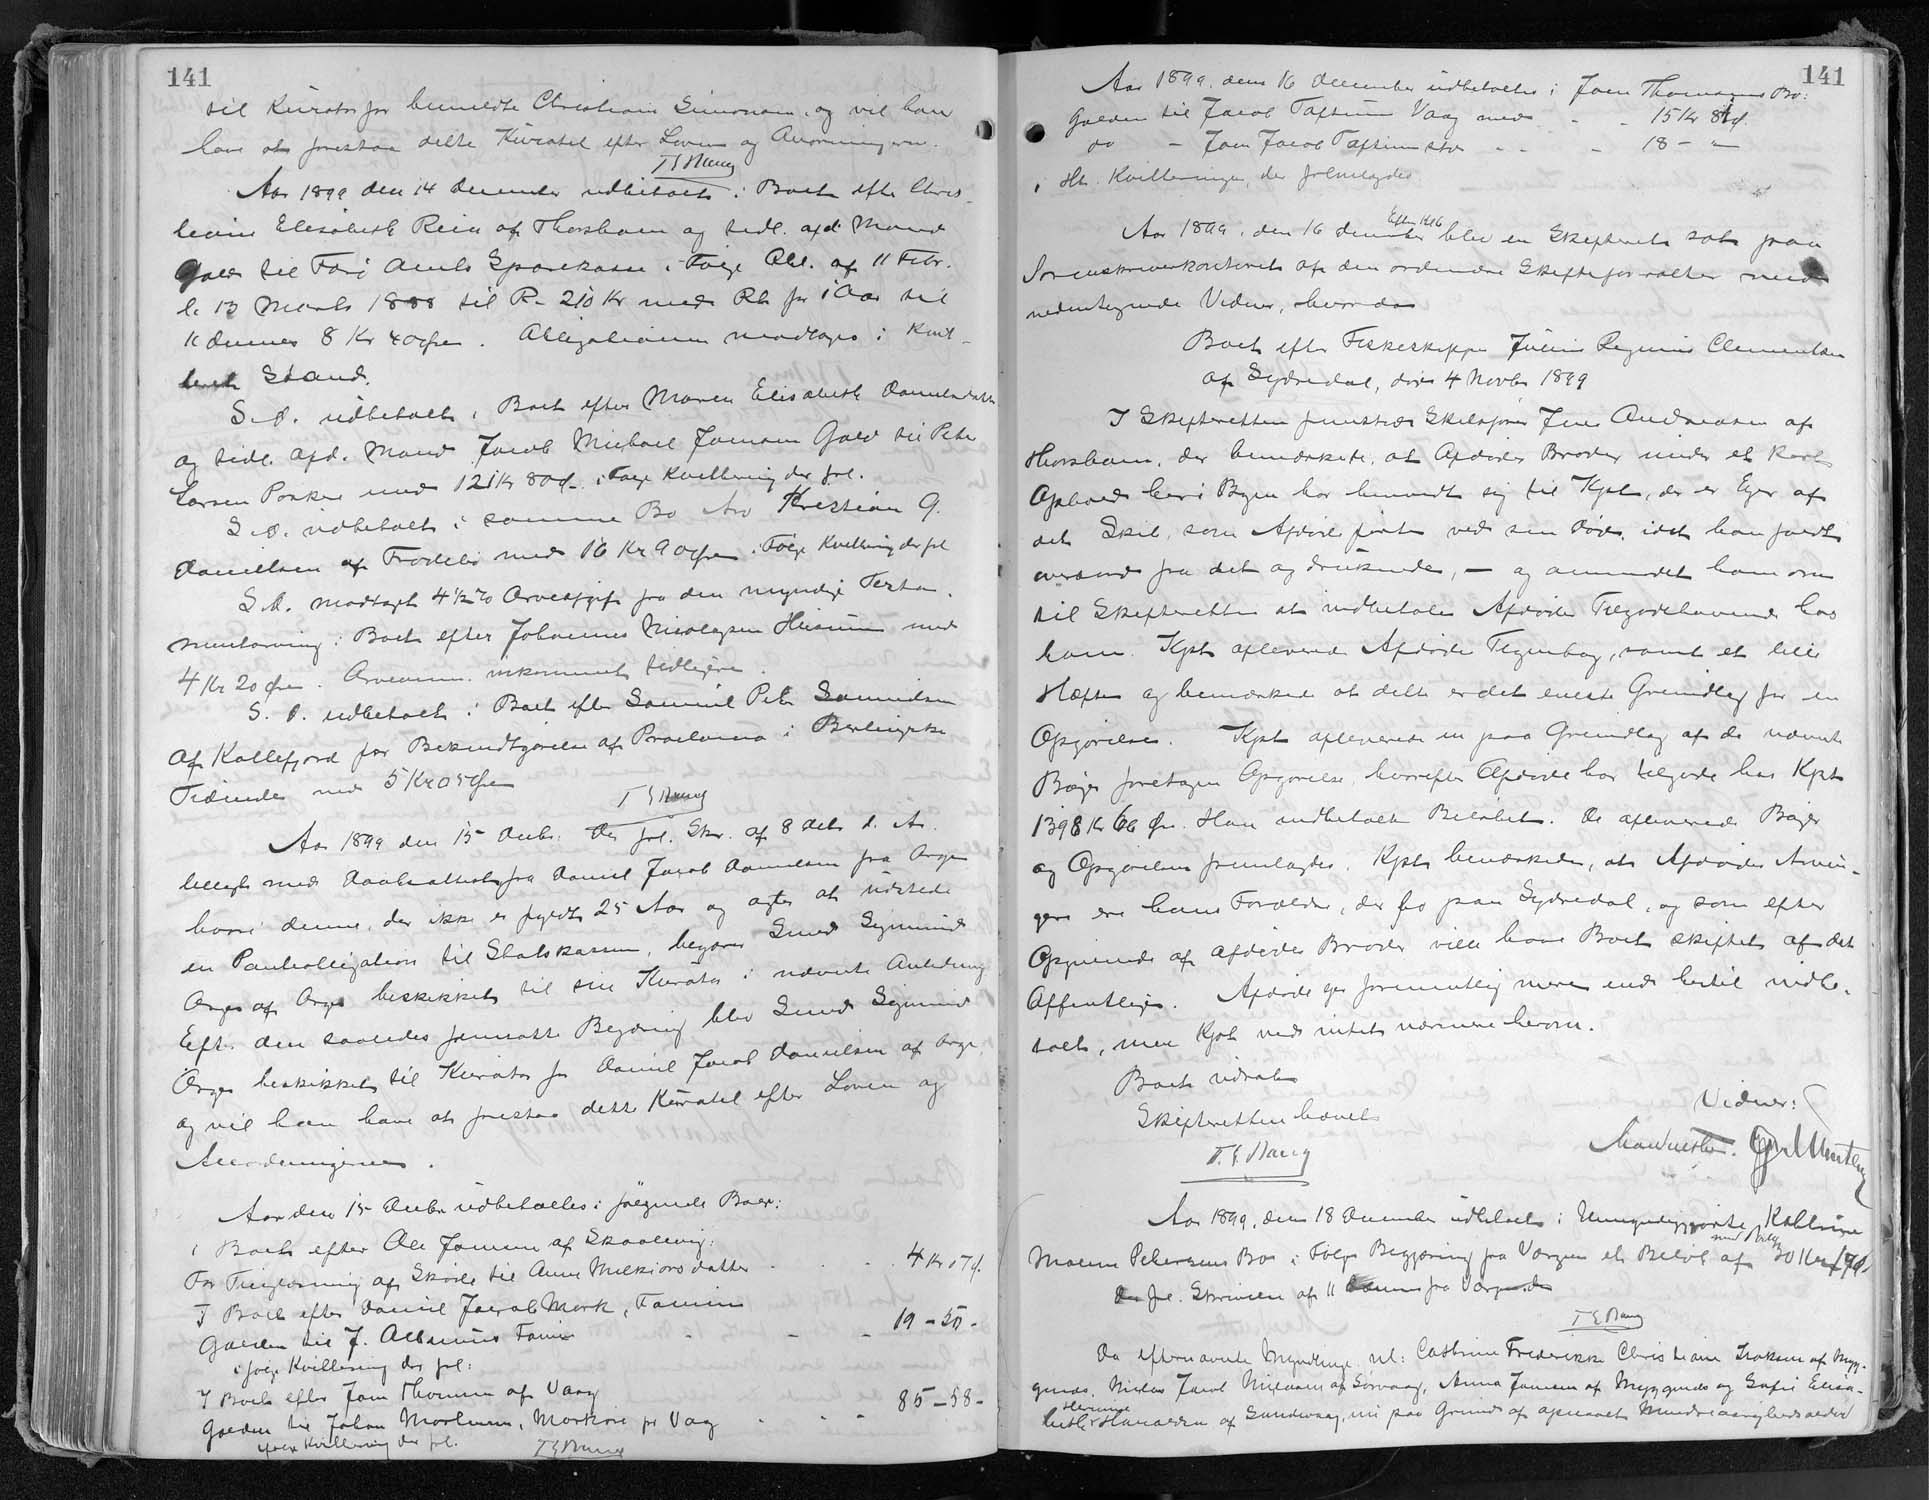 141
til Kurator for bemeldte Christian Simonsen, og vil han
have at forestaa dette Kuratel efter Loven og Anordningerne.
T S Bang
Aar 1899 den 14 December udbetalt i Boet efter Chris-
tiane Elisabeth Rein af Thorshavn og tidl. afd. Mand
Gæld til Færø Amts Sparekasse i Følge Obl. af 11 Febr.
l. 13 Marts 1888 til R. 210 Kr med Rt for 1 Aar til
11 dennes 8 Kr 40 Øre. Obligationen modtages i kvit-
teret Stand.
S. D. udbetalt i Boet efter Maren Elisabeth Danielsdatter
og tidl. afd. Mand Jacob Michael Joensen Gæld til Peter
Larsen med 121 Kr 80 Ø. i Følge Kvittering der fol.
S. D. udbetalt i samme Bo Arv Kristian G.
Danielsen af Frodebø med 16 Kr 90 Øre i Følge Kvittering der fol
S. D. modtaget 4 ½ % Arveafgift fra den myndige Testa-
mentarving i Boet efter Johannes Nicolajsen Heinum med
4 Kr 20 Øre. Arveanm. inkommet tidligere.
S. D. udbetalt i Boet efter Samuel Peter Samuelsen
af Kollefjord for Bekendtgørelse af Proclama i Berlingske
Tidende med 5 Kr 05 Øre
T S Bang
Aar 1899 den 15 Decbr. Der fol. Skr. af 8 dets d. A.
belagt med Daabsattest fra Daniel Jacob Danielsen fra Arge
hvori denne, der ikke er fyldt 25 Aar og agter at udstede
en Panteobligation til Statskassen, begærer Smed Sigmund
Arge af Arge beskikket til sin Kurator i nævnte Anledning
Eft. den saaledes fremsatte Begæring blev Smed Sigmund
Arge beskikket til Kurator for Daniel Jacob Danielsen af Arge
og vil han have at forestaa dette Kuratel efter Loven og
Anordningerne.
Aar den 15 Decbr udbetaltes i følgende Boer:
i Boet efter Ole Jensen af Skaalevig:
For Tinglæsning af Skøde til Anne Melkiorsdatter . . . 4 Kr 17 Ø.
I Boet efter Daniel Jacob Mørk, Famien
Gælden til J. Famien - - - 19 - 50 -
i følge Kvittering der fol:
I Boet efter Joen Thomsen af Vaag
Gælden til Johan Mortensen, Markøre pr Vaag . . . 85 - 58 -
ifølge Kvittering der fol.
T S Bang
141
Aar 1899, den 16 December udbetaltes i Joen Thomsens Bo:
Gælden til Jacob Vaag med - - 15 Kr 81 Ø.
do - Joen Jacob - - - 18 - "
i Hh. Kvitteringer, der følmeldes
Efter Kl 6
Aar 1899, den 16 December blev en Skifteret sat paa
Sorenskriverkontoret af den ordinære Skifteforvalter med
undertegnede Vidner, hvorda
Boet efter Fiskeskipper Julius Regnius Clementsen
af Sydredal, død 4 Novbr 1899
I Skifteretten fremstod Skibsfører Jens Andreasen af
Thorshavn, der bemærkede, at Afdødes Broder under et kort
Ophold her i Byen har henvendt sig til Kpt, der er Ejer af
det Skib, som Afdøde førte ved sin Død, idet han faldt
overbord fra det og druknede, - og anmodet ham om
til Skifteretten at indbetale Afdødes Tilgodehavende hos
ham. Kpt afleverede Afdødes Tegnebog, samt et lille
Hæfte og bemærkede at dette er det eneste Grundlag for en
Opgørelse. Kpt afleverede en paa Grundlag af de nævnte
Bøger foretagen Opgørelse, hvorefter Afdøde har tilgode hos Kpt
1398 Kr 66 Øre. Han indbetalte Beløbet. De afleverede Bøger
og Opgørelsen fremlagdes. Kpt bemærkede, at Afdødes Arvin-
ger ere hans Forældre, der bo paa Sydredal, og som efter
Opgivende af afdødes Broder ville have Boet skiftet af det
Offentlige. Afdøde ejer formentlig mere end hertil indbe-
talt, men Kpt ved intet nærmere herom.
Boet udsat
Skifteretten hævet
T. S. Bang
Vidner:
Aar 1899, den 18 December udbetalt i Umyndiggjorte Kathrine
Malene Petersens Bo i Følge Begjæring fra Værgen et Beløb af 30 Kr
med Porto
Der fol. Skrivelse af 11 dennes fra Værgen
T S Bang
Da efternævnte Myndlinge, nl: Cathrine Frederikke Christiane Isaksen af Myg-
genæs, Niclas Jacob Nielsen af Sørvaag, Anna Joensen af Myggenæs og Sofie Elisa-
beth Hermine Haraldsen af Sandevaag, nu paa Grund af opnaaet Mindreaarighedsalder